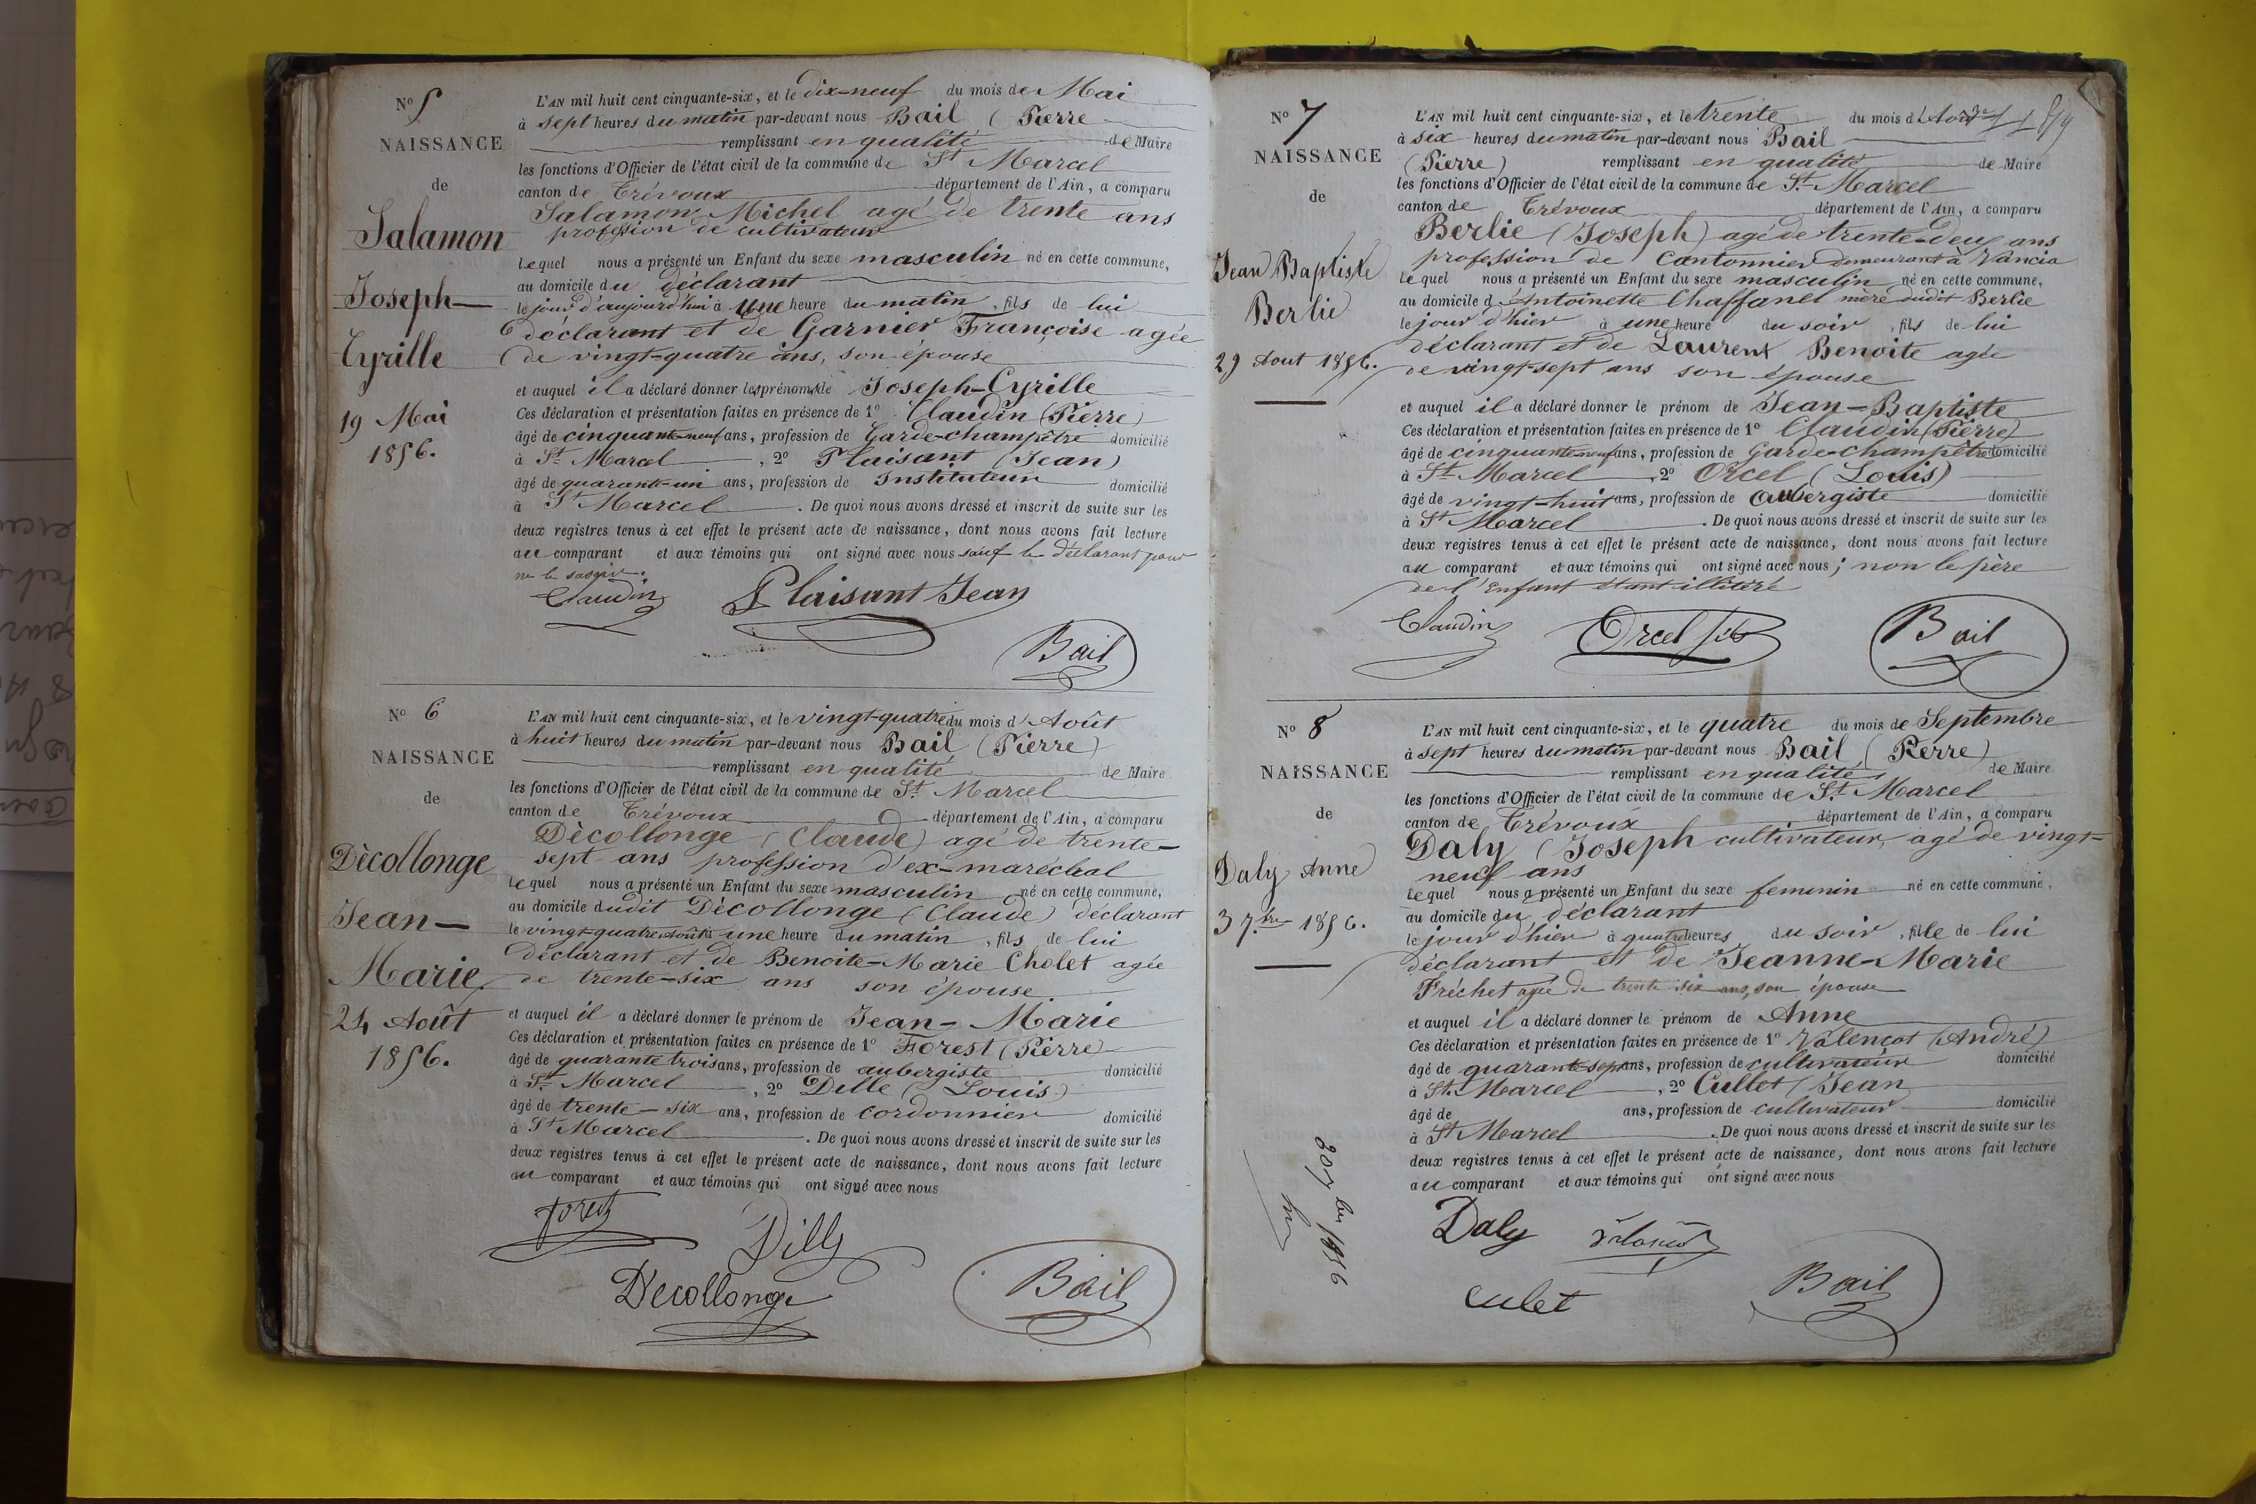 N° 5
NAISSANCE
de
Salamon
Joseph—
Cyrille
19 Mai
1856.
L'AN mil huit cent cinquante-six, et le dix-neuf du mois de Mai
à sept heures du matin par-devant nous Bail (Pierre
remplissant en qualité de Maire
les fonctions d'Officier de l'état civil de la commune de St Marcel
canton de Trévoux département de l'Ain, a comparu
Salamon Michel agé de trente ans
profession de cultivateur
lequel nous a présenté un Enfant du sexe masculin né en cette commune,
au domicile du déclarant
le jour d'aujourd'hui à une heure du matin, fils de lui
déclarant et de Garnier Françoise agée
de vingt-quatre ans, son épouse
et auquel il a déclaré donner les prénoms de Joseph-Cyrille
Ces déclaration et présentation faites en présence de 1° Claudin (Pierre)
âgé de cinquante-neuf ans, profession de Garde-champêtre domicilié
à St Marcel, 2° Plaisant (Jean)
âgé de quarante-un ans, profession de Instituteur domicilié
à St Marcel. De quoi nous avons dressé et inscrit de suite sur les
deux registres tenus à cet effet le présent acte de naissance, dont nous avons fait lecture
au comparant et aux témoins qui ont signé avec nous sauf le déclarant pour
ne le savoir.
Claudin Plaisant Jean
Bail
N° 6
NAISSANCE
de
Dècollonge
Jean—
Marie
24 Août
1856.
L'AN mil huit cent cinquante-six, et le vingt-quatre du mois d'Août
à huit heures du matin par-devant nous Bail (Pierre)
remplissant en qualité de Maire
les fonctions d'Officier de l'état civil de la commune de St Marcel
canton de Trévoux département de l'Ain, a comparu
Dècollonge (Claude) agé de trente-
sept ans profession d'ex-maréchal
lequel nous a présenté un Enfant du sexe masculin né en cette commune,
au domicile dudit Dècollonge (Claude) déclarant
le vingt-quatre Août à une heure du matin, fils de lui
déclarant et de Benoite-Marie Cholet agée
de trente-six ans son épouse
et auquel il a déclaré donner le prénom de Jean-Marie
Ces déclaration et présentation faites en présence de 1° Forest (Pierre)
âgé de quarante trois ans, profession de aubergiste domicilié
à St Marcel, 2° Dille (Louis)
âgé de trente-six ans, profession de cordonnier domicilié
à St Marcel. De quoi nous avons dressé et inscrit de suite sur les
deux registres tenus à cet effet le présent acte de naissance, dont nous avons fait lecture
au comparant et aux témoins qui ont signé avec nous
Forest Dilly
Decollonge Bail
N° 7
NAISSANCE
de
Jean Baptiste
Berlie
29 Aout 1856.
L'AN mil huit cent cinquante-six, et le trente du mois d'Août
à six heures du matin par-devant nous Bail
(Pierre) remplissant en qualité de Maire
les fonctions d'Officier de l'état civil de la commune de St Marcel
canton de Trévoux département de l'Ain, a comparu
Berlie (Joseph) agé de trente-deux ans
profession de Cantonnier demeurant à Vancia
lequel nous a présenté un Enfant du sexe masculin né en cette commune,
au domicile d'Antoinette Chaffanel mère dudit Berlie
le jour d'hier à une heure du soir, fils de lui
déclarant et de Laurent Benoite agée
de vingt-sept ans son épouse
et auquel il a déclaré donner le prénom de Jean-Baptiste
Ces déclaration et présentation faites en présence de 1° Claudin (Pierre)
âgé de cinquante-neuf ans, profession de Garde-champêtre domicilié
à St Marcel, 2° Orcel (Louis)
âgé de vingt-huit ans, profession de Aubergiste domicilié
à St Marcel. De quoi nous avons dressé et inscrit de suite sur les
deux registres tenus à cet effet le présent acte de naissance, dont nous avons fait lecture
au comparant et aux témoins qui ont signé avec nous; non le père
de l'Enfant étant illitéré
Claudin Orcel Bail
N° 8
NAISSANCE
de
Daly Anne
3 7.bre 1856.
L'AN mil huit cent cinquante-six, et le quatre du mois de Septembre
à sept heures du matin par-devant nous Bail (Pierre)
remplissant en qualité de Maire
les fonctions d'Officier de l'état civil de la commune de St Marcel
canton de Trévoux département de l'Ain, a comparu
Daly (Joseph cultivateur, agé de vingt-
neuf ans
lequel nous a présenté un Enfant du sexe feminin né en cette commune,
au domicile du déclarant
le jour d'hier à quatre heures du soir, fille de lui
déclarant et de Jeanne-Marie
Fréchet agée de trente six ans, son épouse
et auquel il a déclaré donner le prénom de Anne
Ces déclaration et présentation faites en présence de 1° Valençot (André)
âgé de quarante-sept ans, profession de cultivateur domicilié
à St Marcel, 2° Cullet (Jean
âgé de ans, profession de cultivateur domicilié
à St Marcel. De quoi nous avons dressé et inscrit de suite sur les
deux registres tenus à cet effet le présent acte de naissance, dont nous avons fait lecture
au comparant et aux témoins qui ont signé avec nous
Daly
culet Bail